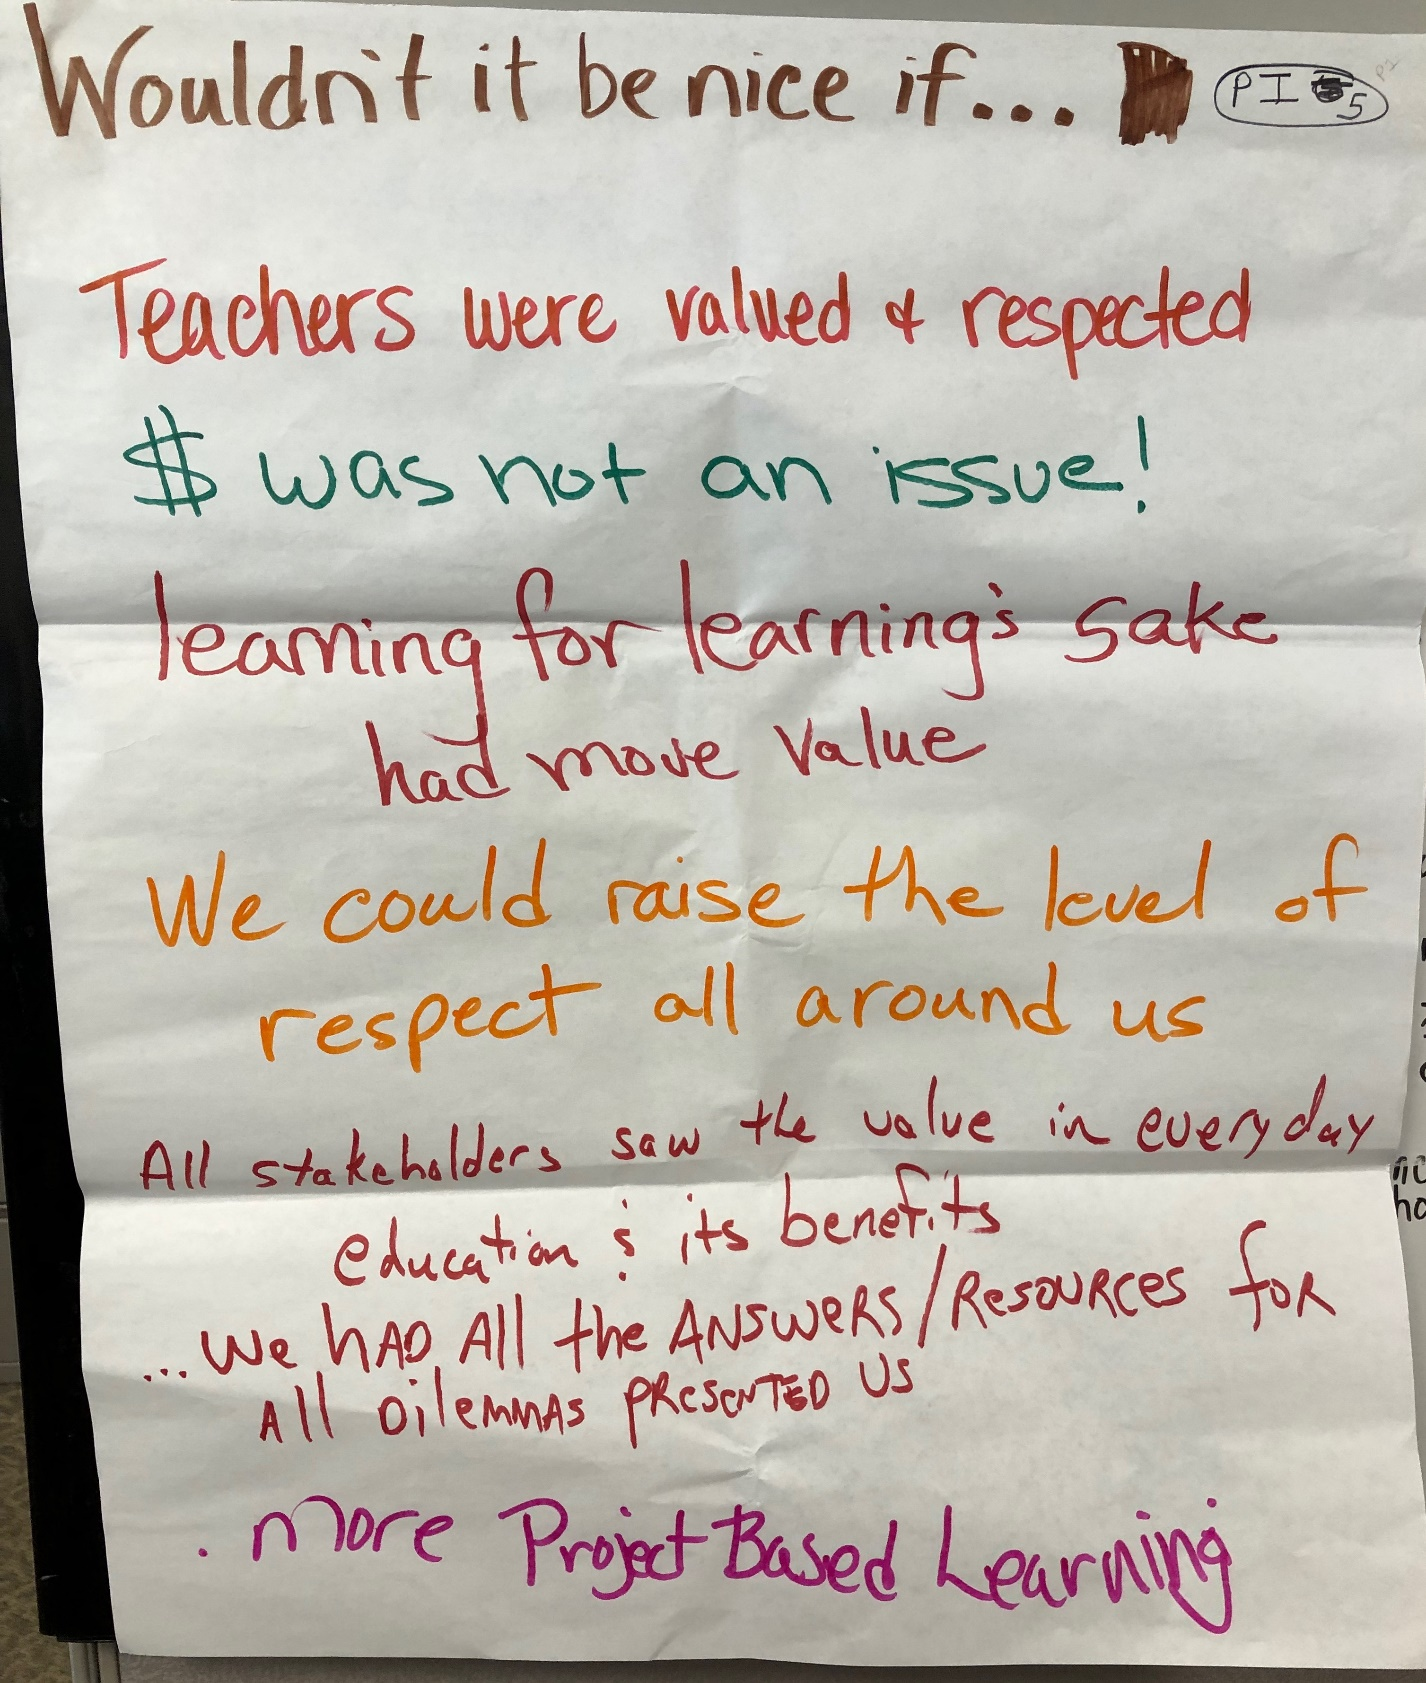 Wouldn't it be nice if... PI 5
Teachers were valued & respected
$ was not an issue!
learning for learning's sake
had more value
We could raise the level of
respect all around us
All stakeholders saw the value in everyday
education & its benefits
...We HAD All the ANSWERS/RESOURCES foR
All DilemmAs PRESENTED US
. more Project Based Learning